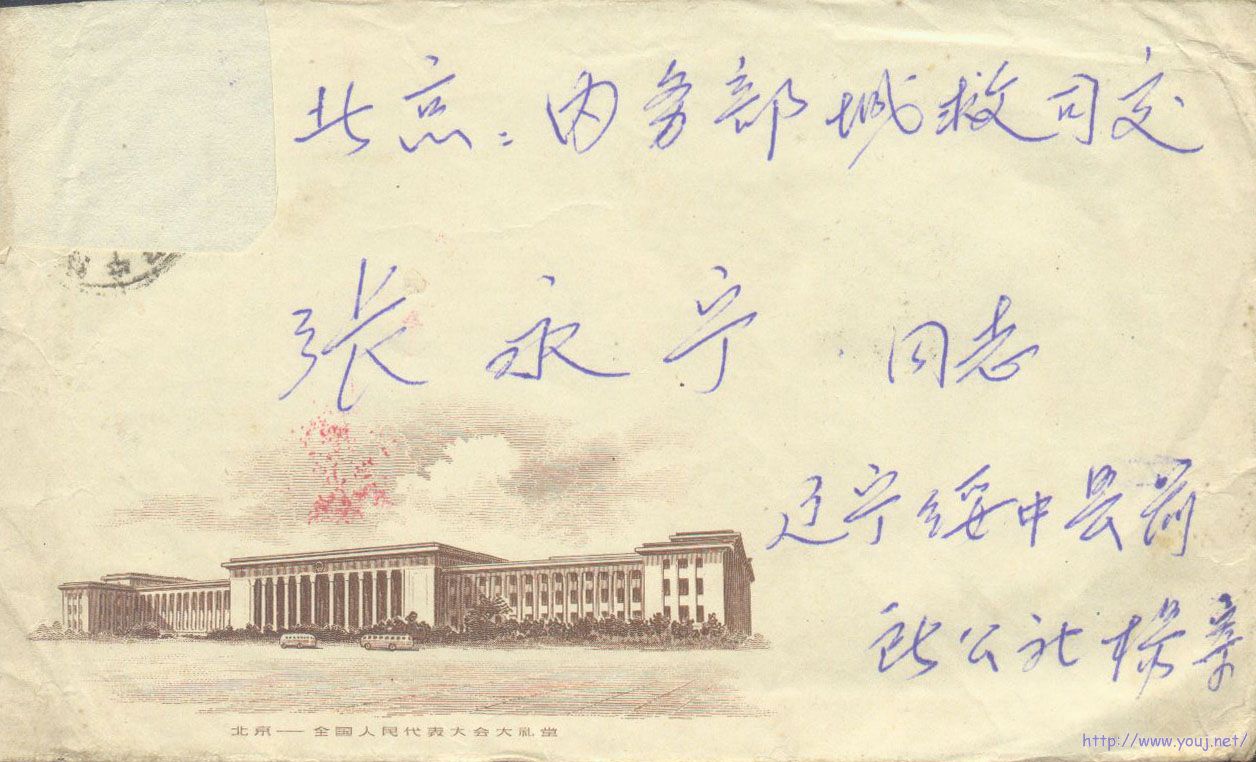 北京：内务部城救司交
张永宁 同志
辽宁绥中县前
卫公社杨
北京——全国人民代表大会大礼堂
http://www.youj.net/